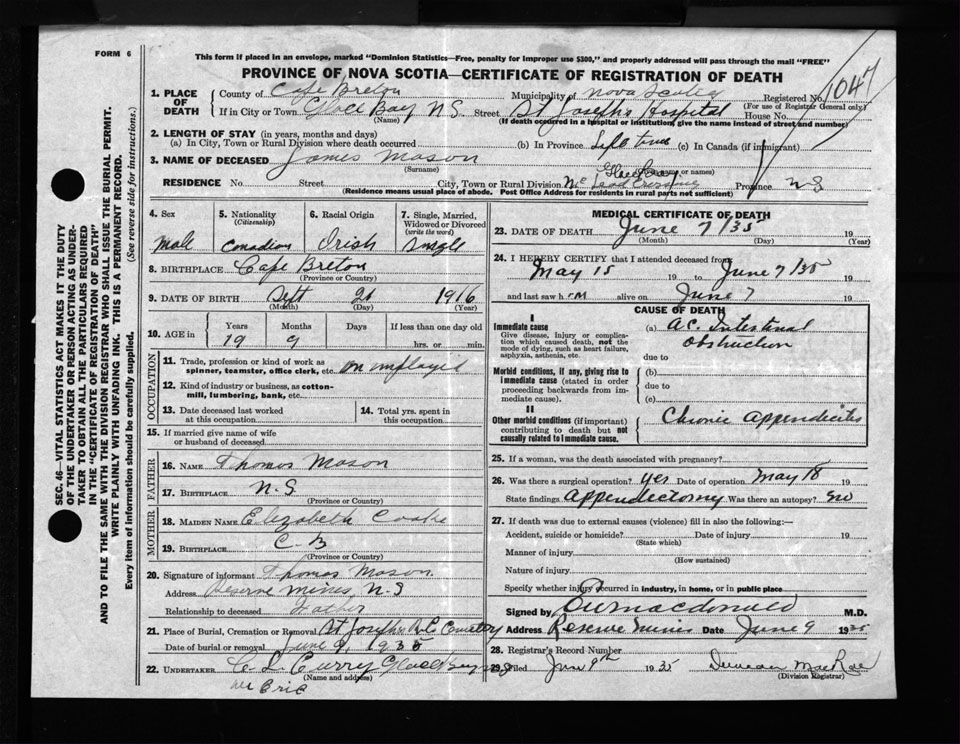 FORM 6
This form if placed in an envelope, marked "Dominion Statistics—Free, penalty for improper use $300," and properly addressed will pass through the mail "FREE"
PROVINCE OF NOVA SCOTIA—CERTIFICATE OF REGISTRATION OF DEATH
1. PLACE OF DEATH
County of Cape Breton Municipality of Nova Scotia Registered No. 1047
(For use of Registrar General only)
If in City or Town Glace Bay N.S. Street St Josephs Hospital House No.
(Name) (If death occurred in a hospital or institution, give the name instead of street and number)
2. LENGTH OF STAY (in years, months and days)
(a) In City, Town or Rural Division where death occurred (b) In Province Life time (c) In Canada (if immigrant)
3. NAME OF DECEASED James Mason
(Surname) names)
Glace Bay
RESIDENCE No. Street City, Town or Rural Division Province NS
(Residence means usual place of abode. Post Office Address for residents in rural parts not sufficient)
SEC. 46—VITAL STATISTICS ACT MAKES IT THE DUTY OF THE UNDERTAKER OR PERSON ACTING AS UNDERTAKER TO OBTAIN ALL THE PARTICULARS REQUIRED IN THE "CERTIFICATE OF REGISTRATION OF DEATH"
AND TO FILE THE SAME WITH THE DIVISION REGISTRAR WHO SHALL ISSUE THE BURIAL PERMIT.
WRITE PLAINLY WITH UNFADING INK. THIS IS A PERMANENT RECORD.
Every item of information should be carefully supplied. (See reverse side for instructions.)
4. Sex
Male
5. Nationality
(Citizenship)
Canadian
6. Racial Origin
Irish
7. Single, Married, Widowed or Divorced
(write the word)
Single
8. BIRTHPLACE Cape Breton
(Province or Country)
9. DATE OF BIRTH Sept 26 1916
(Month) (Day) (Year)
10. AGE in
Years Months Days If less than one day old
19 9 hrs. or min.
OCCUPATION
11. Trade, profession or kind of work as
spinner, teamster, office clerk, etc. on imployed
12. Kind of industry or business, as cotton-
mill, lumbering, bank, etc.
13. Date deceased last worked at this occupation
14. Total yrs. spent in this occupation
15. If married give name of wife or husband of deceased
FATHER
16. NAME Thomas Mason
17. BIRTHPLACE N.S
(Province or Country)
MOTHER
18. MAIDEN NAME Elizabeth Cooke
19. BIRTHPLACE C.B
(Province or Country)
20. Signature of informant Thomas Mason
Address Reserve Mines, N.S
Relationship to deceased Father
21. Place of Burial, Cremation or Removal St Josephs R.C Cemetry
Date of burial or removal June 9, 1935
22. UNDERTAKER C L Curry Glace Bay
(Name and address)
MEDICAL CERTIFICATE OF DEATH
23. DATE OF DEATH June 7/35 19
(Month) (Day) (Year)
24. I HEREBY CERTIFY that I attended deceased from
May 15 19 to June 7/35 19
and last saw h im alive on June 7 19
CAUSE OF DEATH
I
Immediate cause
Give disease, injury or complication which caused death, not the mode of dying, such as heart failure, asphyxia, asthenia, etc.
(a) Ac. Intestinal
Obstruction
due to
Morbid conditions, if any, giving rise to immediate cause (stated in order proceeding backwards from immediate cause).
(b)
due to
(c)
II
Other morbid conditions (if important) contributing to death but not causally related to immediate cause.
Chronic Appendicitis
25. If a woman, was the death associated with pregnancy?
26. Was there a surgical operation? yes Date of operation May 18 19
State findings Appendectomy Was there an autopsy? no
27. If death was due to external causes (violence) fill in also the following:—
Accident, suicide or homicide? Date of injury 19
(State which)
Manner of injury
(How sustained)
Nature of injury
Specify whether injury occurred in industry, in home, or in public place
Signed by Macdonald M.D.
Address Reserve Mines Date June 9 1935
28. Registrar's Record Number
29. Filed June 9th 1935 Duncan MacRae
(Division Registrar)